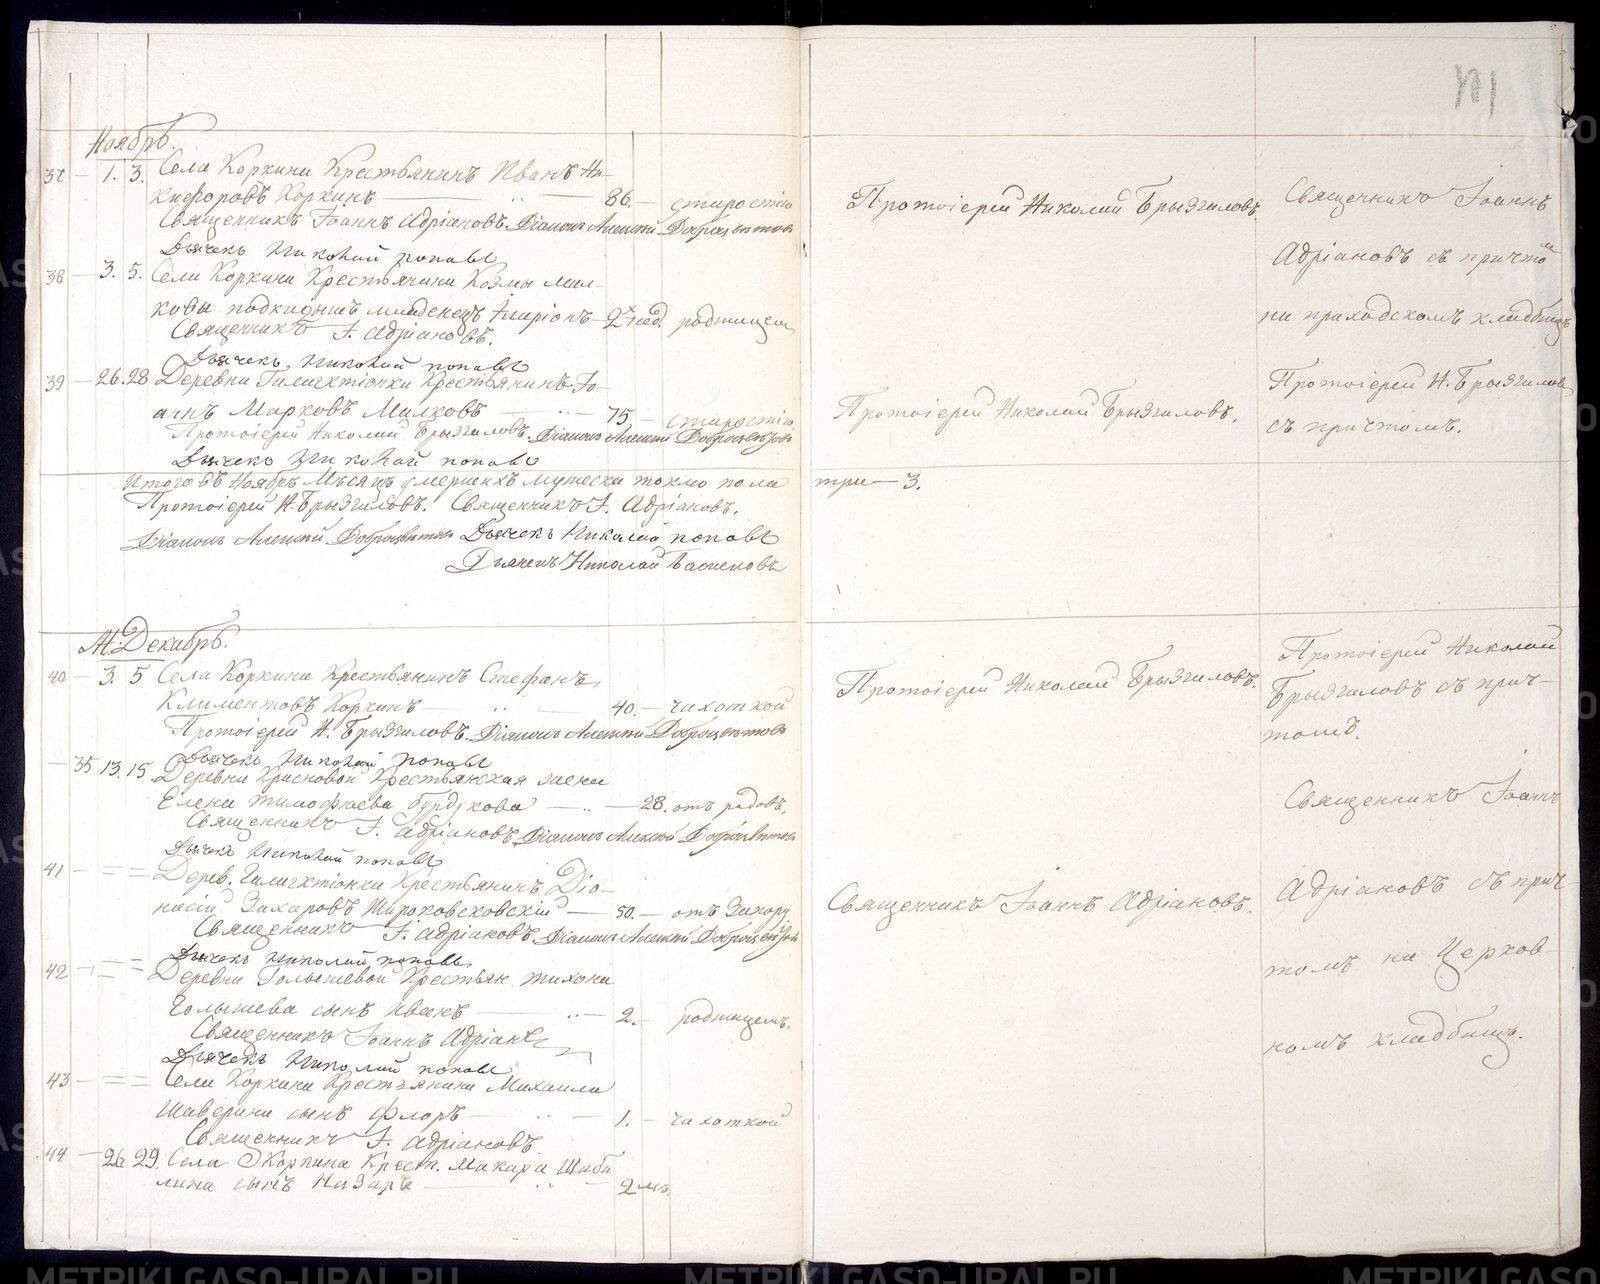 Ноябрь.
37 — 1. 3. Села Коркина Крестьянинъ Иванъ Ни-
кифоровъ Коркинъ — 86. — старостію
Священникъ Іоаннъ Адріановъ. Діаконъ Алексѣй Доброцвѣтовъ
Дьячекъ Николай поповъ
38 — 3. 5. Села Коркина Крестьянина Козмы Мил-
ковы подкидышъ младенецъ Иларіонъ — 2хъ нед. родимцем
Священникъ І. Адріановъ.
Дьячекъ Николай поповъ
39 — 26. 28 Деревни Крестьянинъ Іо-
аннъ Марковъ Милковъ — 75 — старостію
Протоіерей Николай Брызгаловъ. Діаконъ Алексѣй Доброцвѣтовъ
Дьячекъ Николай поповъ
Итого въ Ноябрѣ Мѣсяцѣ умершихъ мужеска токмо пола
Протоіерей Н. Брызгаловъ. Священникъ І. Адріановъ.
Діаконъ Алексѣй Доброцвѣтовъ Дьячекъ Николай поповъ
Дьячекъ Николай
М. Декабрь.
40 — 3. 5 Села Коркина Крестьянинъ Стефанъ
Климентовъ Коркинъ — 40. — чахоткой
Протоіерей Н. Брызгаловъ. Діаконъ Алексѣй Доброцвѣтовъ
Дьячекъ Николай поповъ
— 35 13. 15 Деревни Красновой Крестьянская жена
Елена тимофѣева бурдукова — 28. отъ родовъ.
Священникъ І. Адріановъ Діаконъ Алексѣй Доброцвѣтовъ
Дьячекъ Николай поповъ
41 — = = Дерев. Крестьянинъ Діо-
нисій Захаровъ Широковсковскій — 50. — отъ Запору.
Священникъ І. Адріановъ Діаконъ Алексѣй Доброцвѣтовъ
Дьячекъ Николай поповъ
42 — = = Деревни Голышевой Крестьян. тихона
Голышева сынъ Иванъ — 2. — родимцемъ.
Священникъ Іоаннъ Адріан
Дьячекъ Николай поповъ
43 — = = Села Коркина Крестьянина Михаила
Шаверина сынъ Флоръ — 1. — чахоткой
Священникъ І. Адріановъ.
44 — 26 29. Села Коркина Крест. Макара Шаба
лина сынъ Назаръ — 2 мѣ.
Протоіерей Николай Брызгаловъ.
Протоіерей Николай Брызгаловъ.
три — 3.
Протоіерей Николай Брызгаловъ.
Священникъ Іоаннъ Адріановъ.
Священникъ Іоаннъ
Адріановъ съ причтом
на приходскомъ кладбищѣ
Протоіерей Н. Брызгаловъ
съ причтомъ.
Протоіерей Николай
Брызгаловъ съ прич-
томъ.
Священникъ Іоаннъ
Адріановъ съ прич-
томъ на Церков-
номъ кладбищѣ.
METRIKI.GASO-URAL.RU